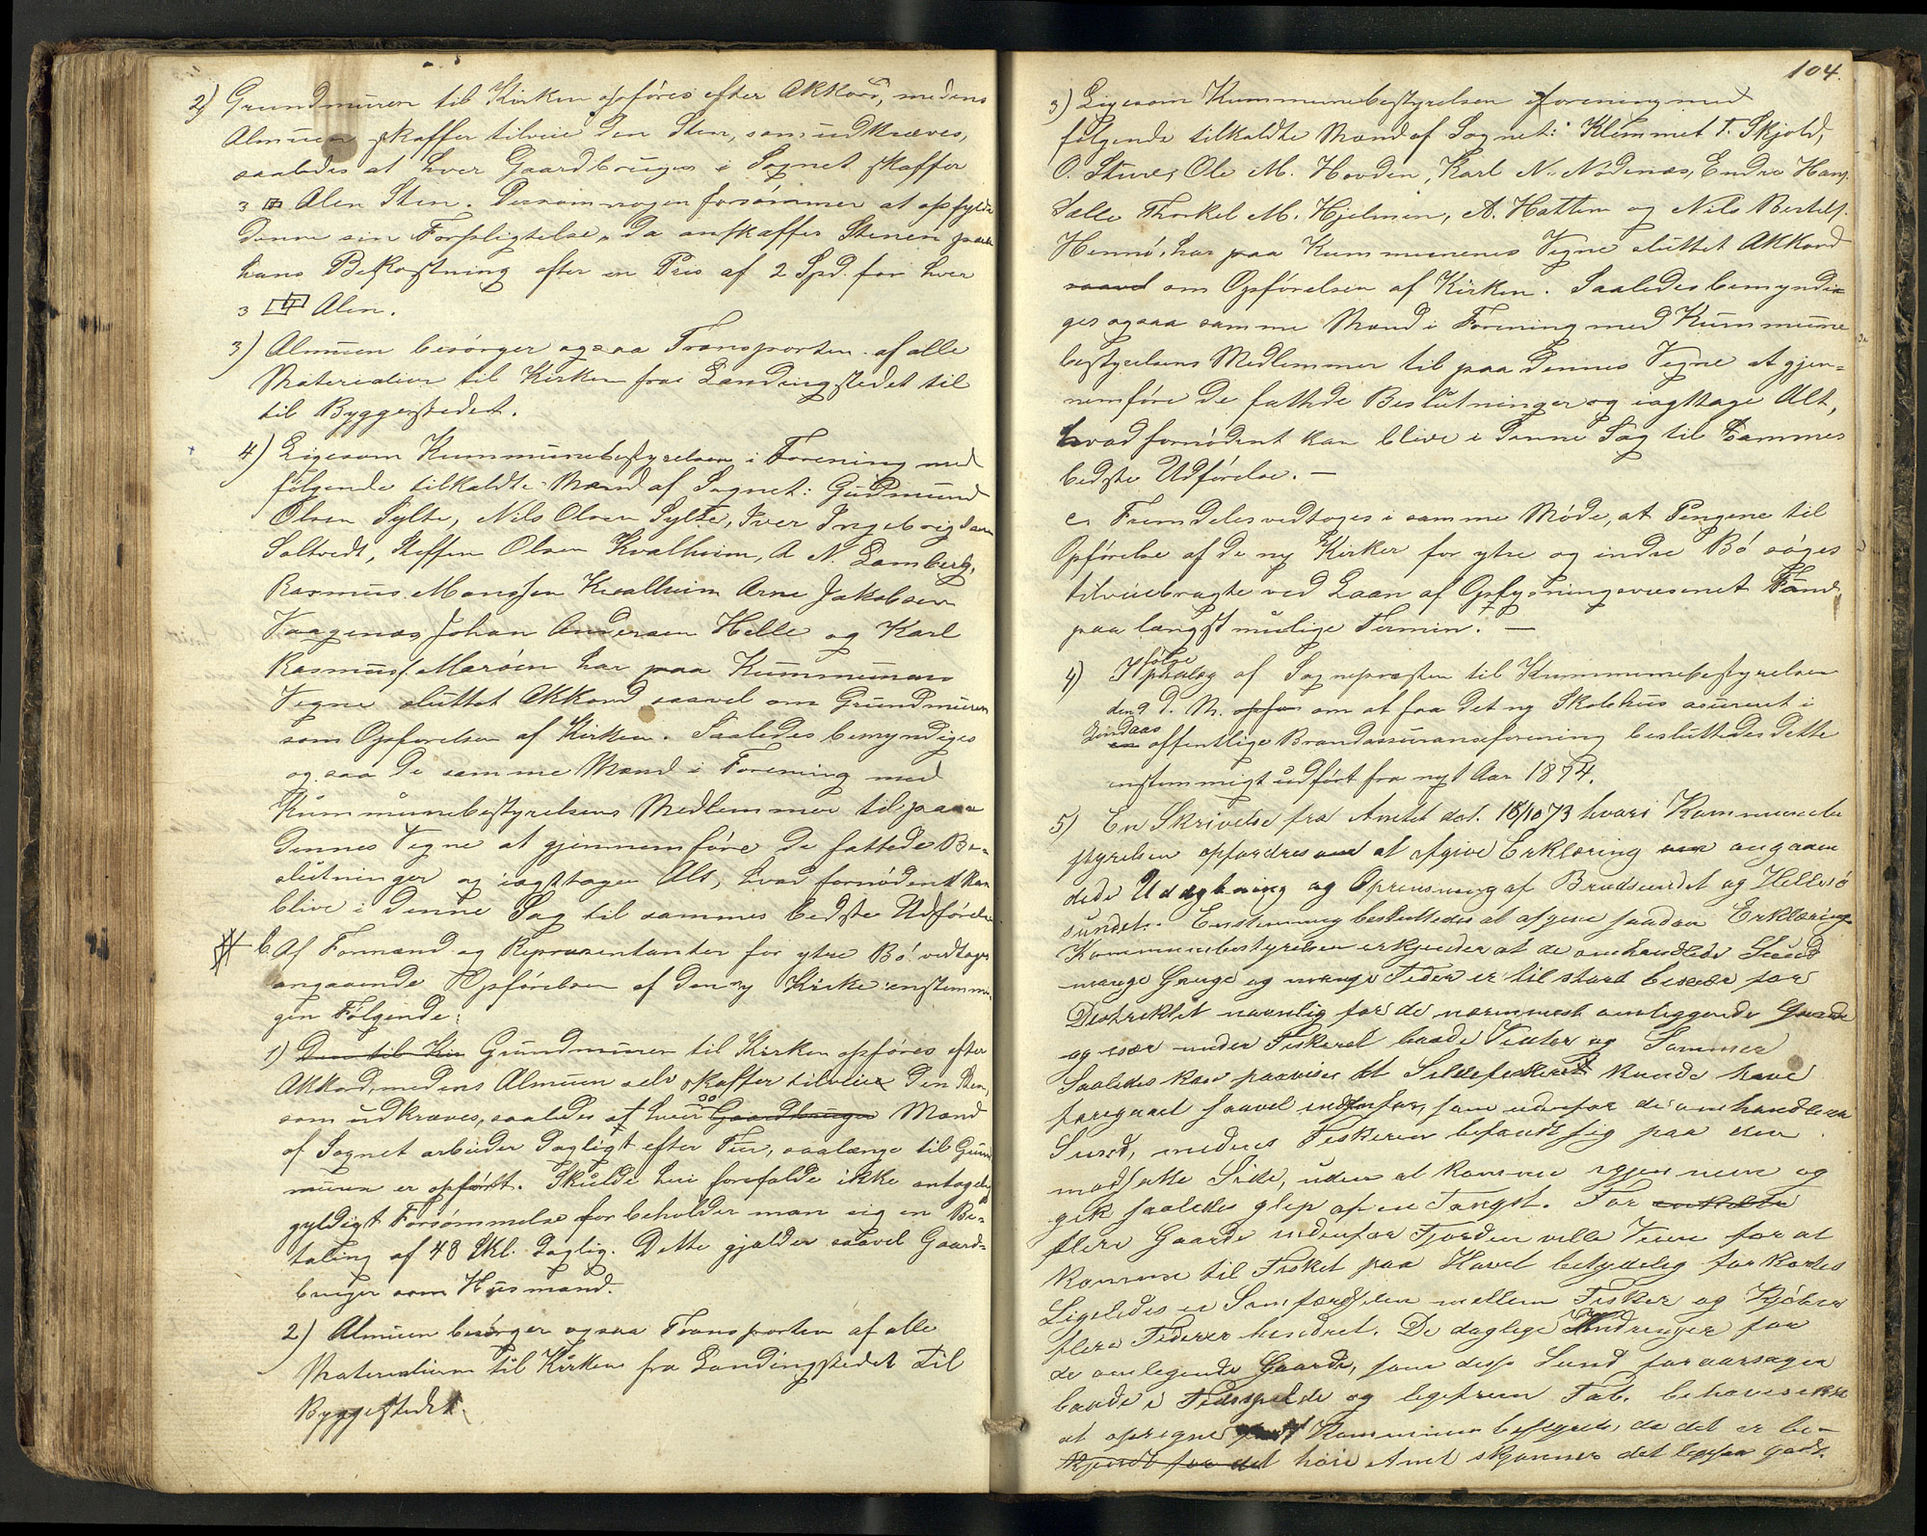 2) Grundmuren til Kirken opføres efter Akkord, medens
Almuen skaffer tilveie den Sten, som udkræves,
saaledes at hver Gaardbruger i Sognet skaffer
3 □ Alen Sten. Dersom nogen forsømmer at opfylde
denne sin Forpligtelse, da anskaffes Stenen paa
hans Bekostning efter en Pris af 2 Spd. for hver
3 □ Alen.
3) Almuen besørger ogsaa Transporten af alle
Materialier til Kirken fra Landingsstedet til
til Byggestedet.
4) Ligesom Kummunebestyrelsen i Forening med
følgende tilkaldte Mænd af Sognet: Gudmund
Olsen Sylte, Nils Olsen Sylte, Iver Ingebrigtsen
Saltvedt, Steffen Olsen Kvalheim, A. N. Lamberg,
Rasmus Monssen Kvalheim Arne Jakobsen
Vaagenæs Johan Andersen Helle og Karl
Rasmuss. Marøen har paa Kummunens
Vegne sluttet Akkord saavel om Grundmuren
som Opførelsen af Kirken. Saaledes bemyndiges
ogsaa de samme Mænd i Forening med
Kummunebestyrelsens Medlemmer til paa
dennes Vegne at gjennemføre de fattede Be-
slutninger og iagttagen Alt, hvad fornødent kan
blive i denne Sag til sammes bedste Udførelse
b. Af Formænd og Repræsentanter for ytre Bø vedtoges
angaaende Opførelsen af den ny Kirke enstemmi-
gen Følgende:
1) Den til Kir Grundmuren til Kirken opføres efter
Akkord, medens Almuen selv skaffer tilveie den Sten,
som udkræves, saaledes at hver Gaardbruger Mand
af Sognet arbeider dagligt efter Tur, saalænge til Grund
muren er opført. Skulde her forefalde ikke antagelig
gyldigt Forsømmelse forbeholder man sig en Be-
taling af 48 Skl. daglig. Dette gjælder saavel Gaard-
bruger som Husmand.
2) Almuen besørger ogsaa Transporten af alle
Materialierne til Kirken fra Landingsstedet til
Byggestedet.
104.
3) Ligesom Kummunebestyrelsen i forening med
følgende tilkaldte Mænd af Sognet: Klemmet T. Skjold,
O. Sture, Ole M. Hovden, Karl N. Nødenæs, Endre Hans.
Sælle Thorkel M. Hjelmen, A. Hatten og Nils Bertels.
Hennø, har paa Kummunens Vegne sluttet Akkord
saavel om Opførelsen af Kirken. Saaledes bemyndi-
ges ogsaa samme Mænd i Forening med Kummune
bestyrelsens Medlemmer til paa dennes Vegne at gjen-
nemføre de fattede Beslutninger og iagttage Alt,
hvad fornødent kan blive i denne Sag til Sammes
bedste Udførelse. —
c. Fremdeles vedtoges i samme Møde, at Pengene til
Opførelse af de ny Kirker for ytre og indre Bø søges
tilveiebragte ved Laan af Oplysningsvæsenets Fond
paa længst mulige Termin. —
4) følge
Ifølge Forslag af Sognepræsten til Kummunebestyrelsen
den 9 d. M. om at faa det ny Skolehus asureret i
Lindaas
offentlige Brandassuranseforening besluttedes dette
enstemmigt udført fra nyt Aar 1874.
5) En Skrivelse fra Amtet dat. 18/10 73 hvori Kommunebe
styrelsen opfordres at afgive Erklæring angaaen
dede Uddybning og Oprensning af Brudsundet og Hellesø
sundet. Enstemmig besluttedes at afgive saadan Erklæring
Kommunebestyrelsen erkjender at de omhandlede Sund
mange Gange og mange Tider er til stort besvær for
Destriktet navnlig for de nærmmest omliggende Gaarde
og især under Fiskeriet baade Vinter og Sommer
Saaledes kan paavises at Sildefiskeriet kunde have
foregaaet saavel indenfor, som udenfor de omhandlede
Sund, medens Fiskeren befandt sig paa den
modsatte Side, uden at komme igjennem og
gik saaledes glip af en Fangst. For enkelte
flere Gaarde indenfor Fjorden ville Veien for at
komme til Fisket paa Havet betydelig forkortes
Ligeledes er Samfærdselen mellem Fisker og Kjøber
flere Tider hindret. De daglige Hindringer for
de omlegende Gaarde, som disse Sund foraarsager
baade i Tidsspilde og ligefrem Tab, behøves ikke
at opregnes Kommunebestyrels, da det er be-
kjendt for det høie Amt skjønner det ligesaa godt.